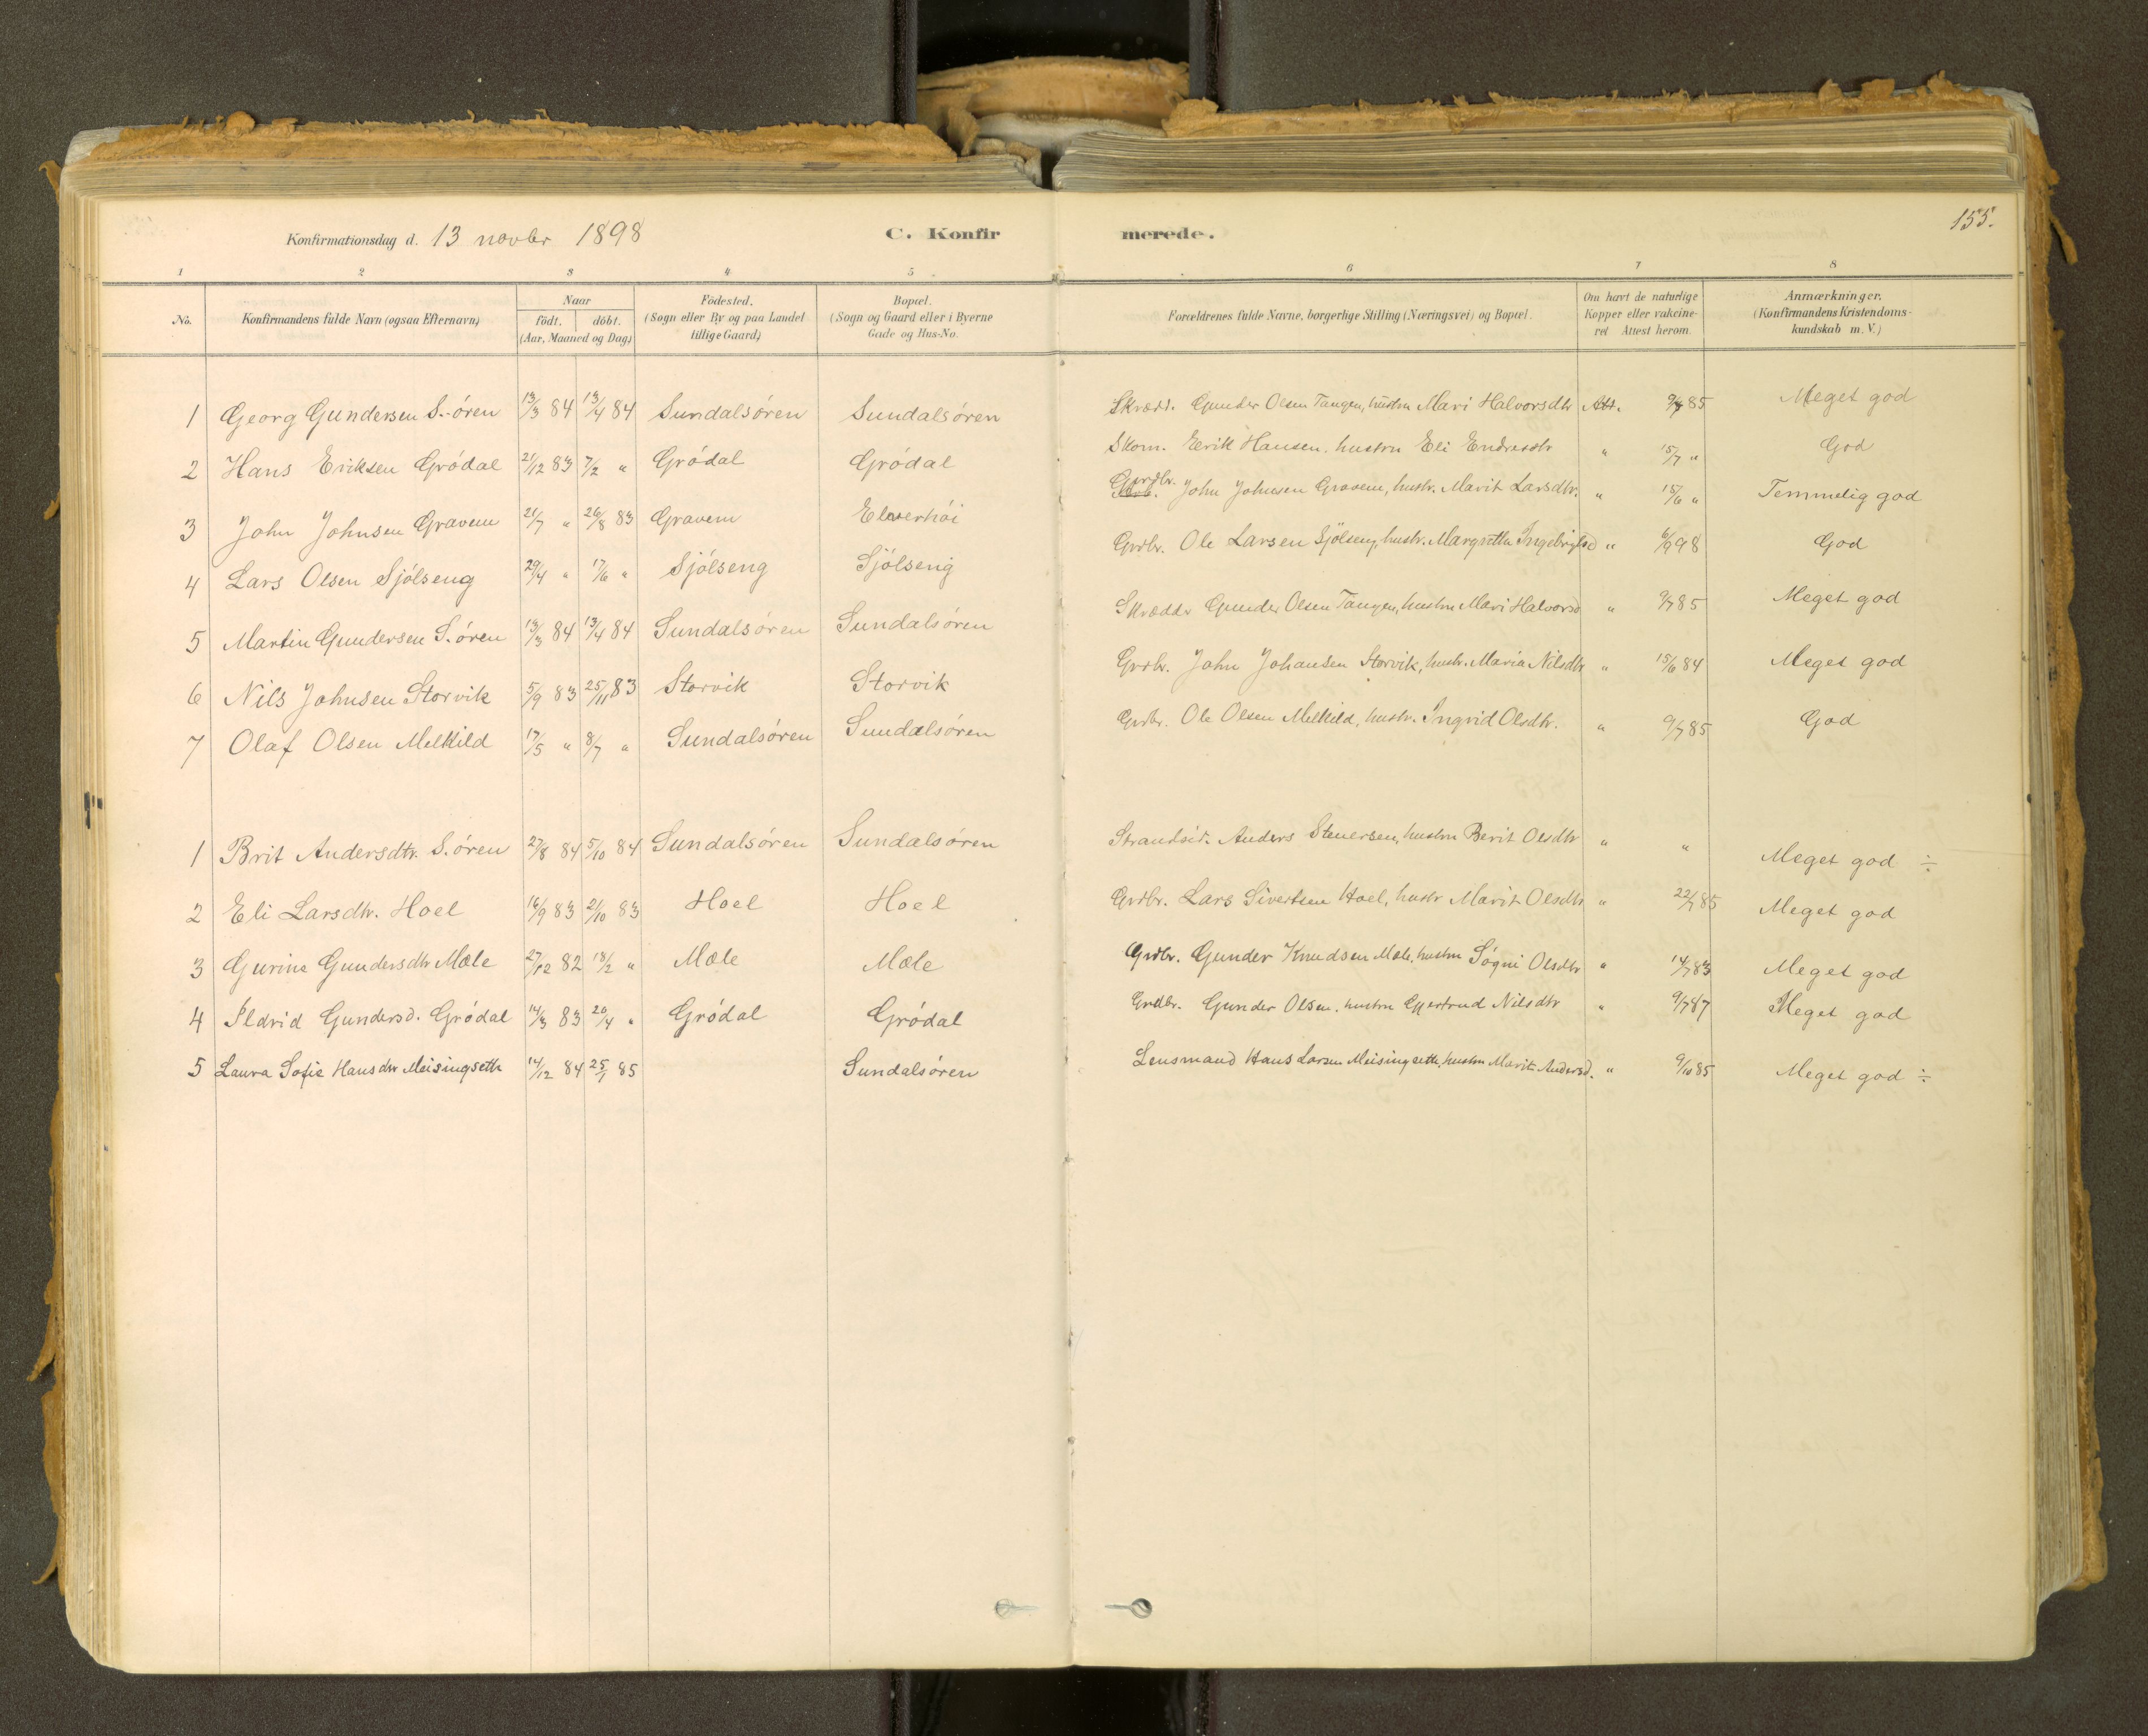 155.
Konfirmationsdag d. 13 novbr 1898 C. Konfir merede.
1 2 3 4 5 6 7 8
No. Konfirmandens fulde Navn (ogsaa Efternavn) Naar født. døbt. (Aar, Maaned og Dag) Fødested. (Sogn eller By og paa Landet tillige Gaard) Bopæl. (Sogn og Gaard eller i Byerne Gade og Hus-No. Forældrenes fulde Navne, borgerlige Stilling (Næringsvei) og Bopæl. Om havt de naturlige Kopper eller vakcineret Attest herom. Anmærkninger. (Konfirmandens Kristendomskundskab m. V.)
1 Georg Gundersen S.-ören 13/3 84 13/4 84 Sundalsören Sundalsören Skrædd. Gunder Olsen Tangen, hustru Mari Halvorsdtr Att. 9/7 85 Meget god
2 Hans Eriksen Grödal 21/12 83 7/2 " Grödal Grödal Skom. Eerik Hansen, hustru Eli Endresdtr " 15/7 " God
3 John Johnsen Gravem 21/7 " 26/8 83 Gravem Elverhöi Gvrdbr. John Johnsen Gravem, hustr. Marit Larsdtr. " 15/6 " Temmelig god
4 Lars Olsen Sjölseng 29/4 " 17/6 " Sjölseng Sjölseng Grdbr. Ole Larsen Sjölseng, hustr. Margrethe Ingebrigtsd " 6/9 98 God
5 Martin Gundersen S.ören 13/3 84 13/4 84 Sundalsören Sundalsören Skrædder Gunder Olsen Tangen, hustru Mari Halvorsd " 9/7 85 Meget god
6 Nils Johnsen Storvik 5/9 83 25/11 83 Storvik Storvik Grdbr. John Johansen Storvik, hustr. Maria Nilsdtr " 15/6 84 Meget god
7 Olaf Olsen Melkild 17/5 " 8/7 " Sundalsören Sundalsören Grdbr. Ole Olsen Melkild, hustr. Ingrid Olsdtr. " 9/7 85 God
1 Brit Andersdtr. S.ören 27/8 84 5/10 84 Sundalsören Sundalsören Strandsid. Anders Stenersen, hustru Berit Olsdtr " " Meget god ÷
2 Eli Larsdtr. Hoel 16/9 83 21/10 83 Hoel Hoel Grdbr. Lars Sivertsen Hoel, hustr Marit Olsdtr " 22/7 85 Meget god
3 Gurine Gundersdtr Mæle 27/12 82 18/2 " Mæle Mæle Grdbr. Gunder Knudsen Mæle, hustru Sögni Olsdtr " 14/7 83 Meget god
4 Ildrid Gundersd. Grödal 14/3 83 20/4 " Grödal Grödal Grdbr. Gunder Olsen, hustru Gjertrud Nilsdtr " 9/7 87 Meget god
5 Laura Sofie Hansdtr Meisingseth 14/12 84 25/1 85 Sundalsören Lensmand Hans Larsen Meisingseth, hustru Marit Andersd. " 9/10 85 Meget god ÷